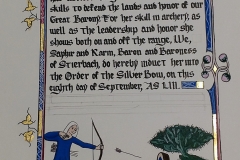 skills to defend the lands and honor of our
Great Barony. For her skill in archery, as
well as the leadership and honor she
shows both on and off the range, We,
Saphir and Karm, Baron and Baroness
of Stierbach, do hereby induct her into
the Order of the Silver Bow, on this
eighth day of September, AS LIII.